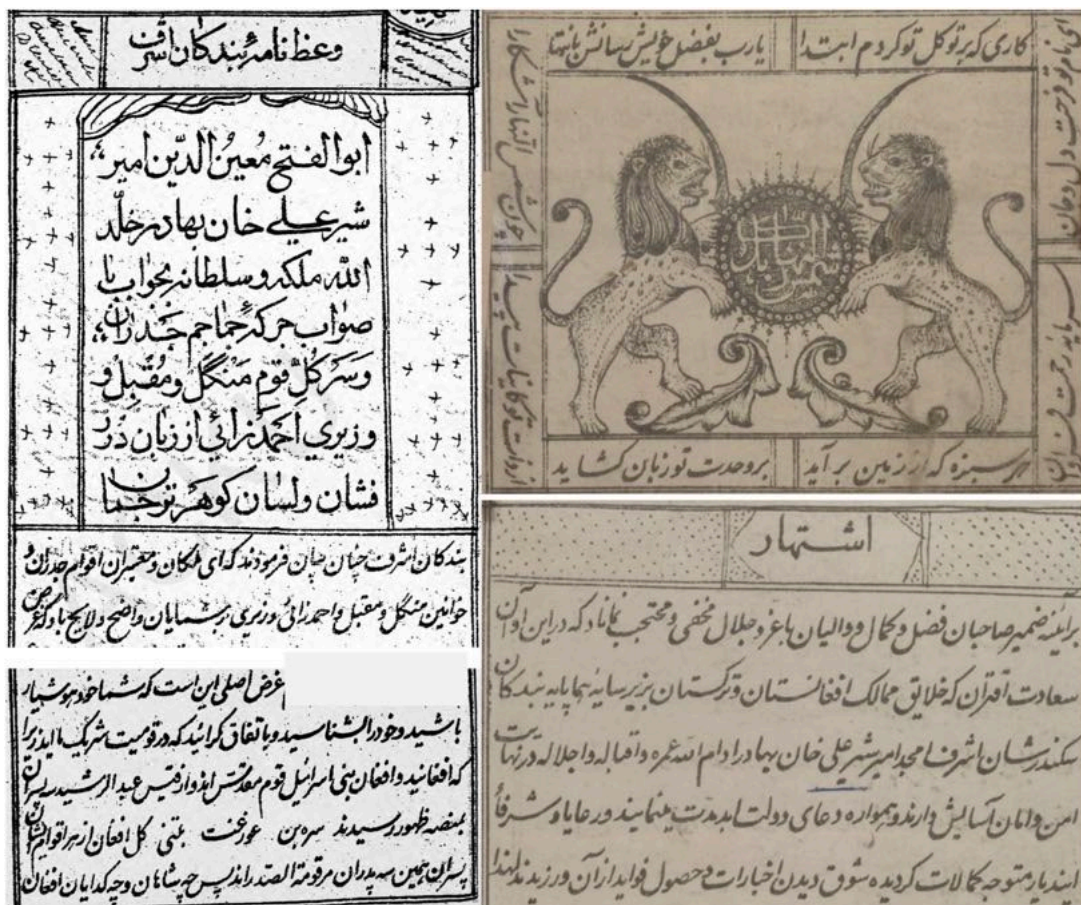 وعظ نامهٔ بندکان اشرف
ابوالفتح مُعینُ الدّین امیر
شیر علی خان بهادر خلّد
اللّه ملکه و سلطانه بجواب با
صواب جرکهٔ جماجم جَدران
وَسَر کُلّ قوم مَنکَل ومُقبِل و
وزیري احمد زائی از زبان دُرَر
فشان ولسان کوهَر ترجمان
بندکان اشرف چنان فرمودند که ای ملکان و معتبران اقوام جدران و
خوانین منکل و مقبل و احمد زائی و وزیری برشمایان واضح و لایح باد که غرض
غرض اصلی این است که شما خود هوشیار
باشید و خود را بشناسید و باتفاق کرائید که در قومیت شریک ما اید زیرا
که افغانید و افغان بنی اسرائیل قوم مقدس اند و از قیس عبد الرشید سه پسران
بمنصه ظهور رسیدند سره بن عورغشت بتنی کل افغان از هر اقوام ایشان
پسران همین سه پدران مرقومة الصدر اند پس چه شاهان و چه کدایان افغان
کاری که بر تو کل تو کردم ابتدا
یا رب بفضل خویش رسانش بانتها
ای نام تو فرحت دل و جان
شمس النهار
هر سبزه که از زمین بر آید
بر وحدت تو زبان کشاید
از ذات تو کاینات پیدا
چون شمس النهار آشکارا
اشتهار
بر آئینه ضمیر صاحبان فضل و کمال و والیان با عز و جلال مخفی و محتجب نماناد که در این آوان
سعادت اقتران که خلایق ممالک افغانستان و ترکستان بزیر سایه هما پایه بندکان
سکندر شان اشرف امجد امیر شیر علی خان بهادر ادام الله عمره و اقباله و اجلاله در نهایت
امن و امان آسایش دارند و همواره دعای دولت ابد مدت مینمایند و رعایا و شرفأ
ایندیار متوجه کمالات کردیده شوق دیدن اخبارات و حصول فواید از آن ورزیدند لهذا